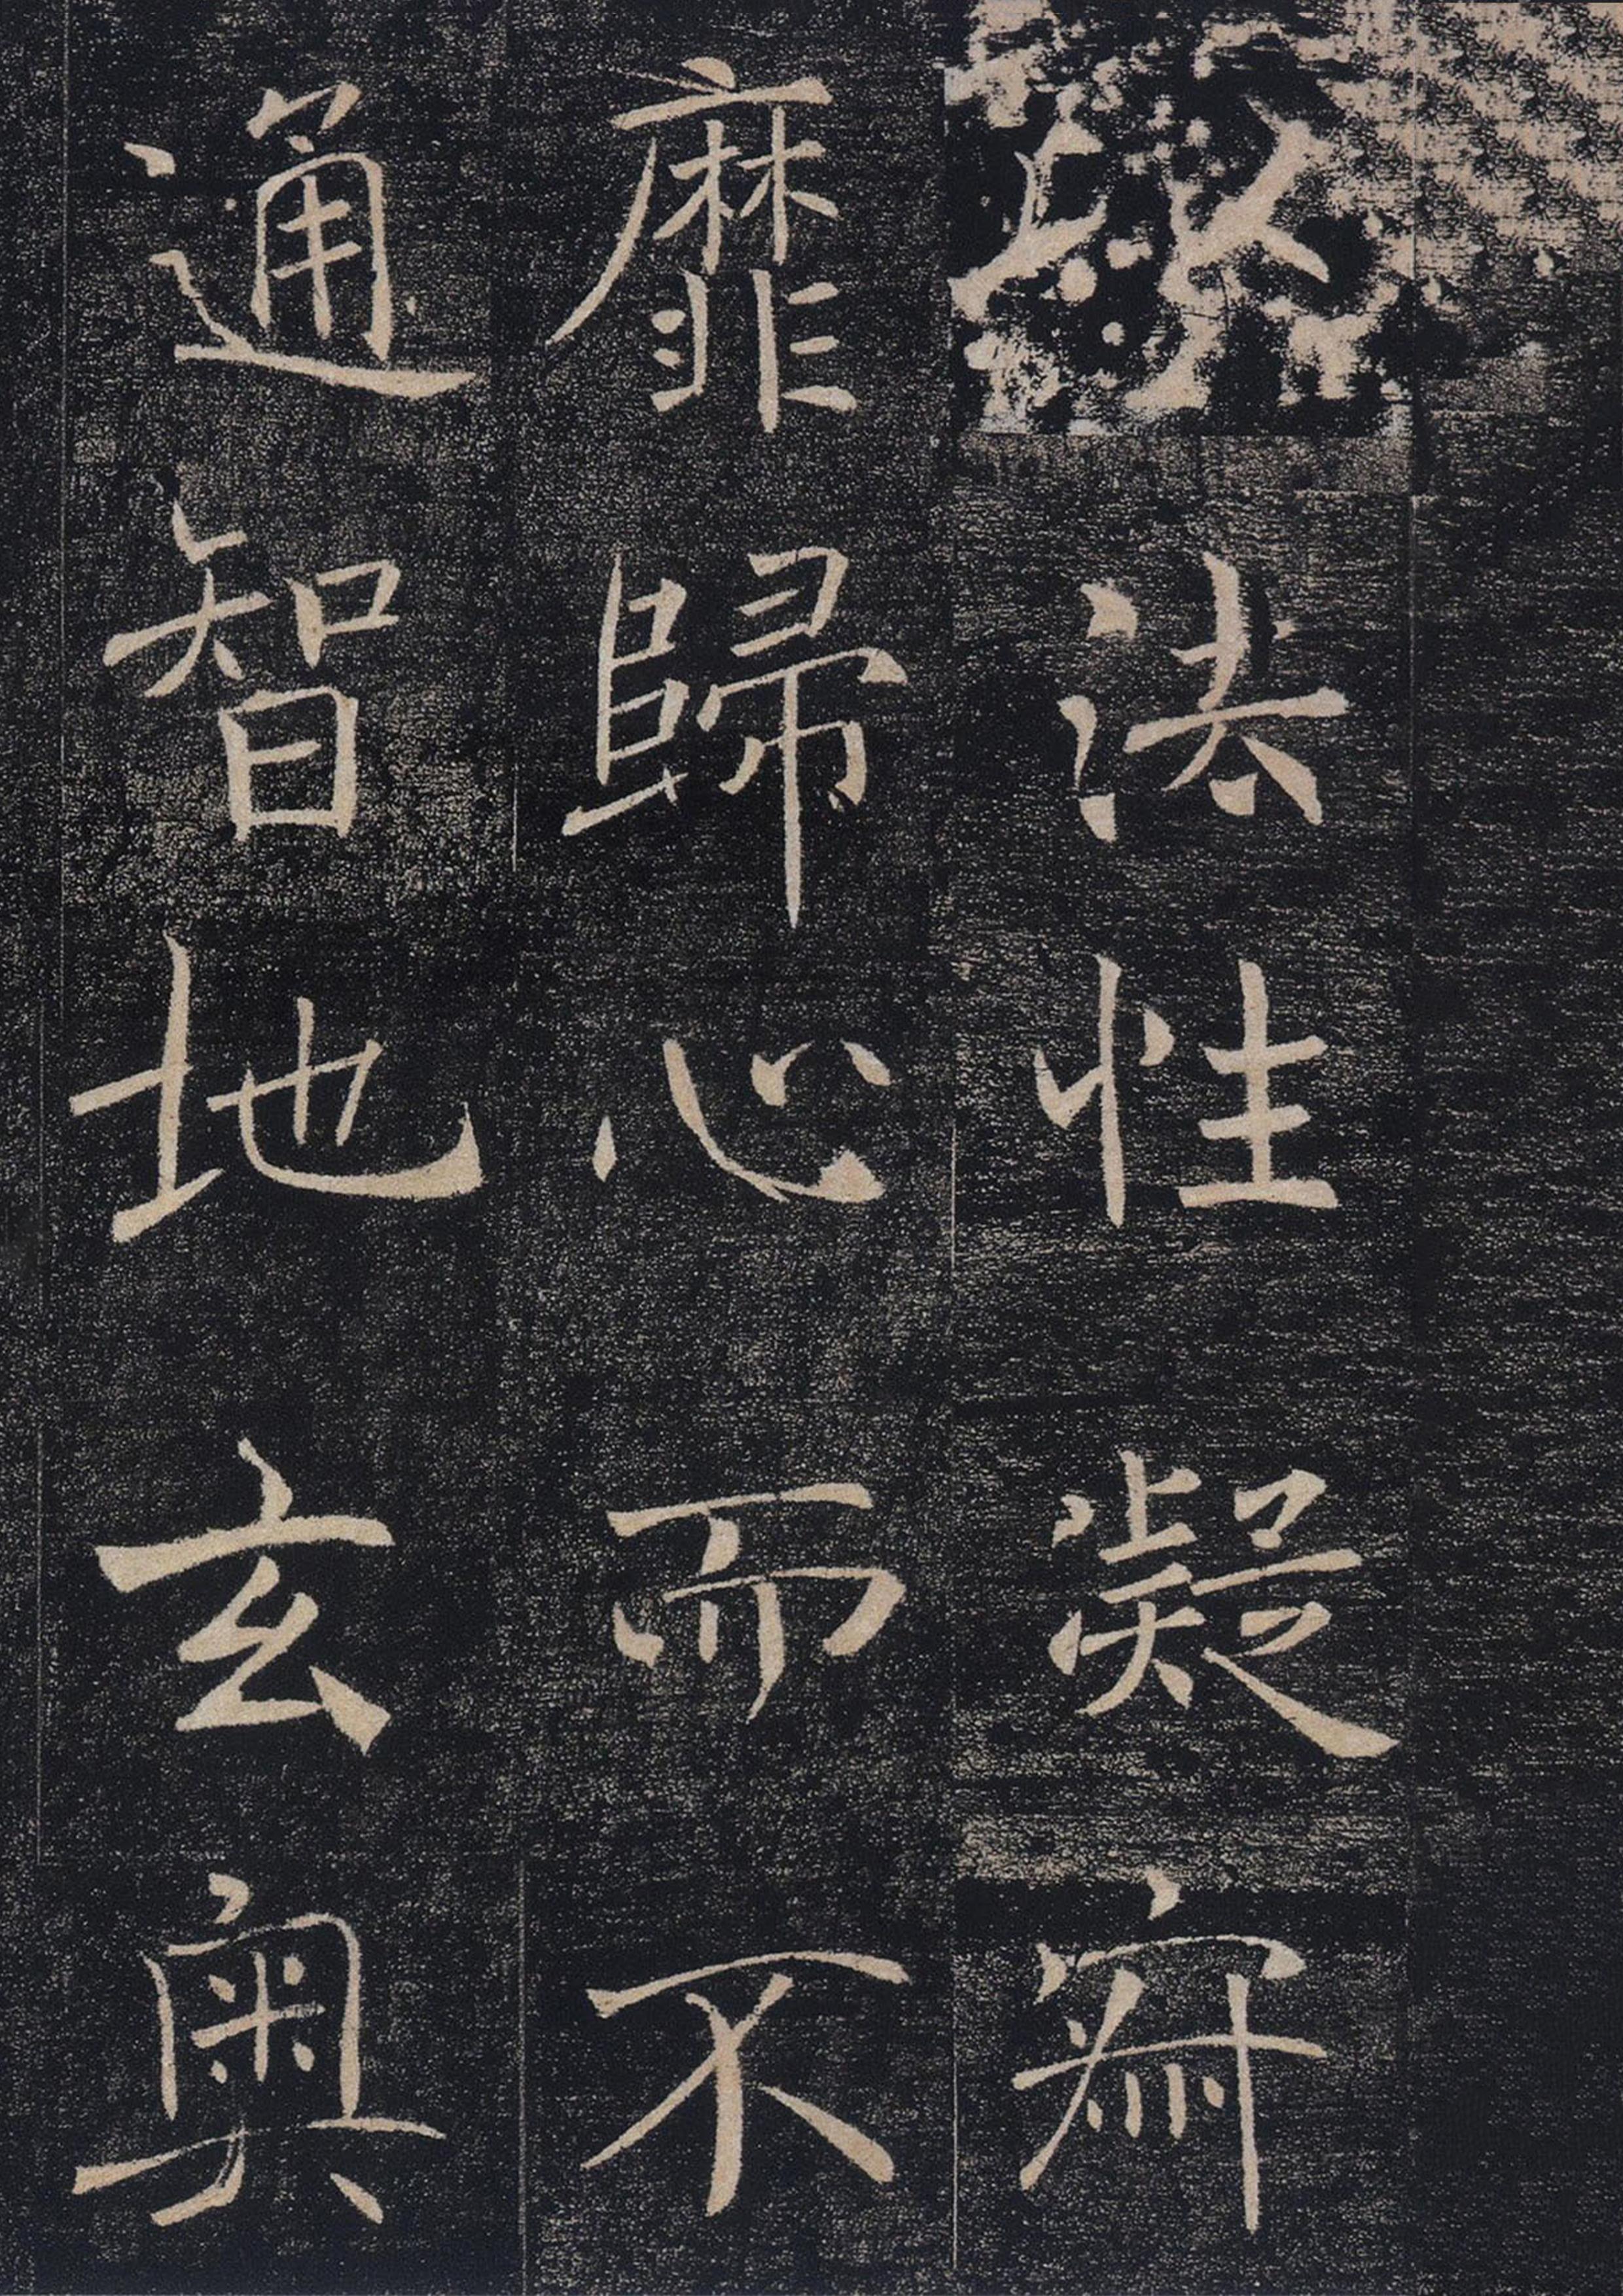 法性凝寂
靡歸心而不
通智地玄奧